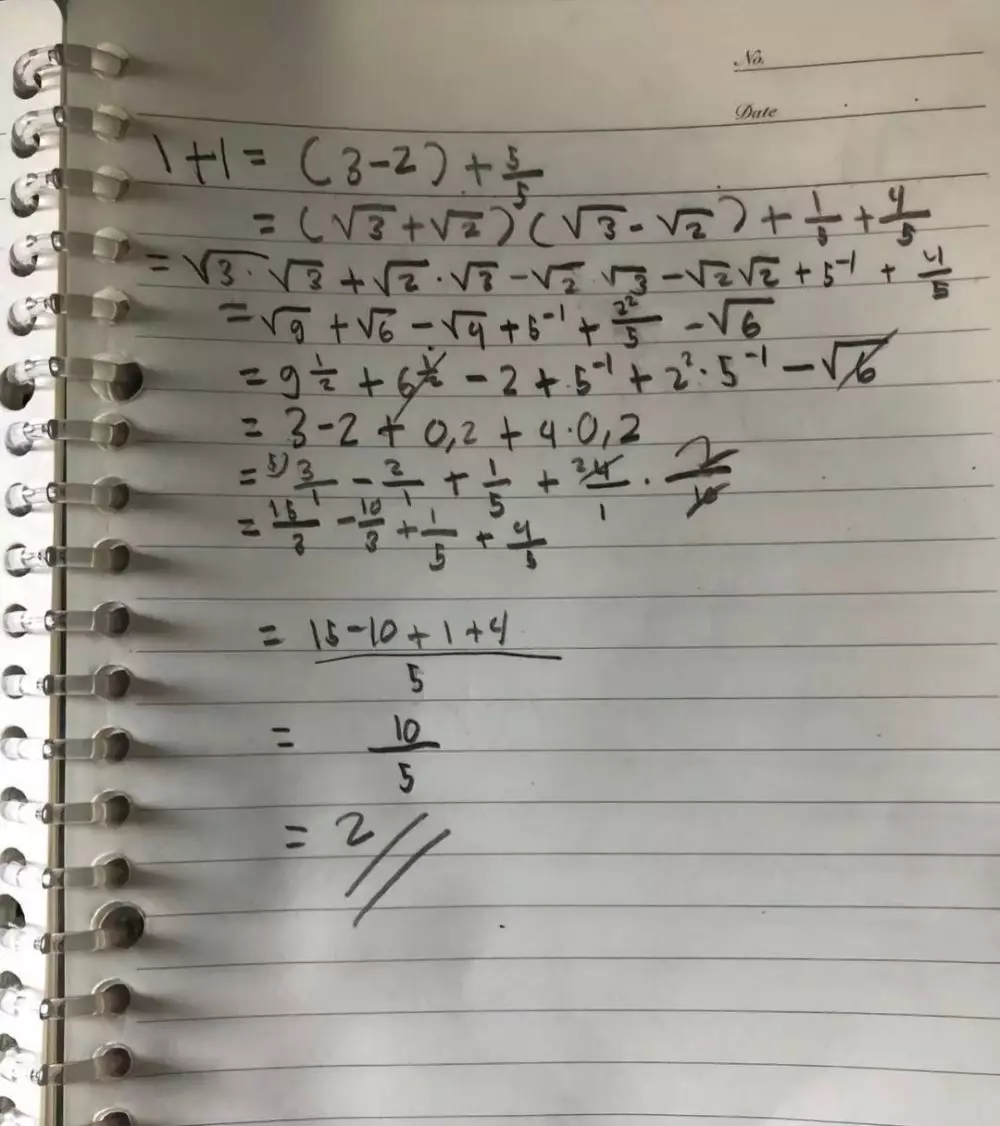 No.
Date
1+1 = (3-2) + 5/5
= (√3+√2)(√3-√2) + 1/5 + 4/5
= √3·√3 + √2·√3 - √2 √3 - √2√2 + 5⁻¹ + 4/5
= √9 + √6 - √4 + 5⁻¹ + 2²/5 - √6
= 9^1/2 + 6^1/2 - 2 + 5⁻¹ + 2²·5⁻¹ - √6
= 3-2 + 0,2 + 4·0,2
= 5) 3/1 - 2/1 + 1/5 + 2 4/1 · 2/10
= 15/3 - 10/3 + 1/5 + 4/5
= 15-10+1+4/5
= 10/5
= 2//